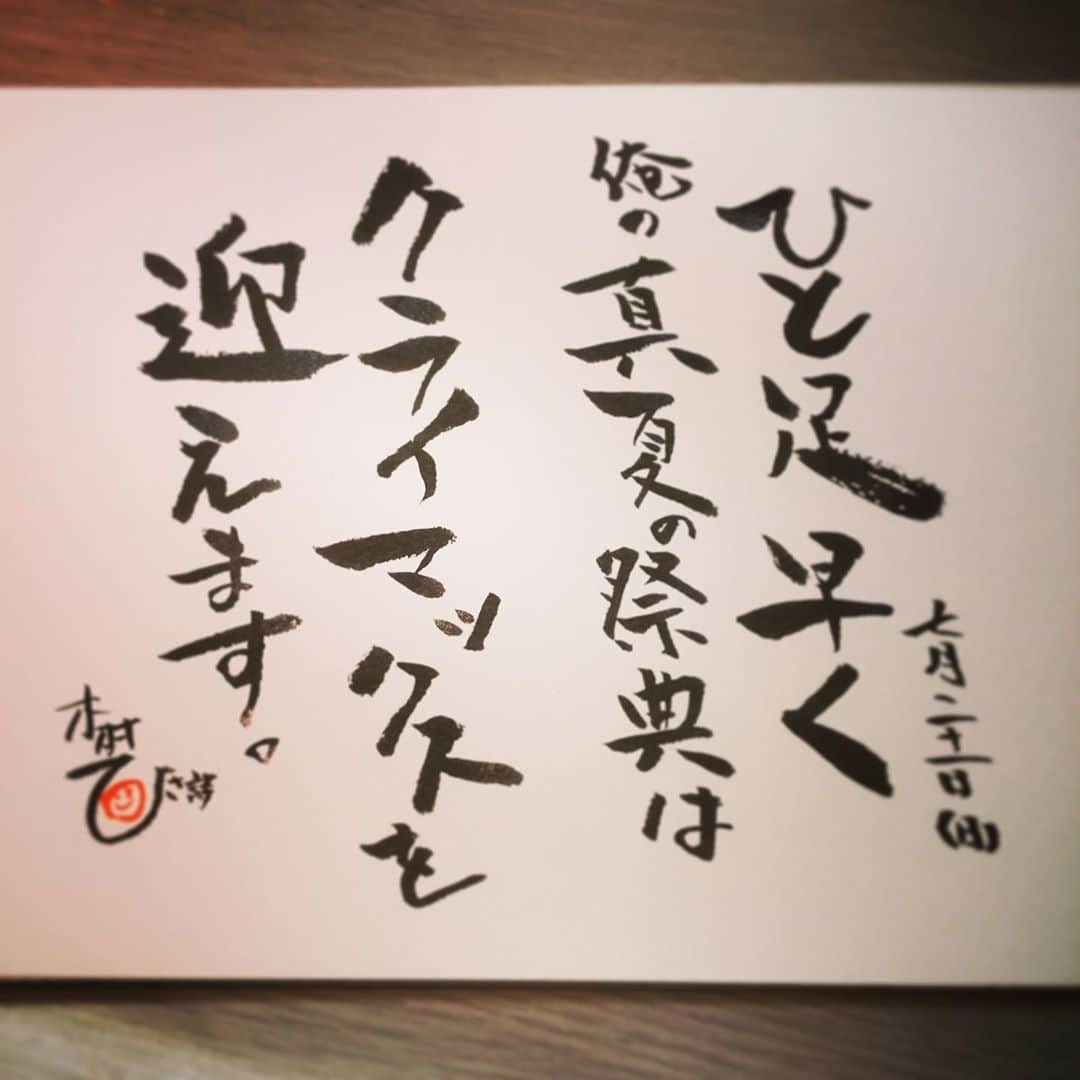 七月二十一日（日）
ひと足早く
俺の真夏の祭典は
クライマックスを
迎えます。
木村ひさ詩